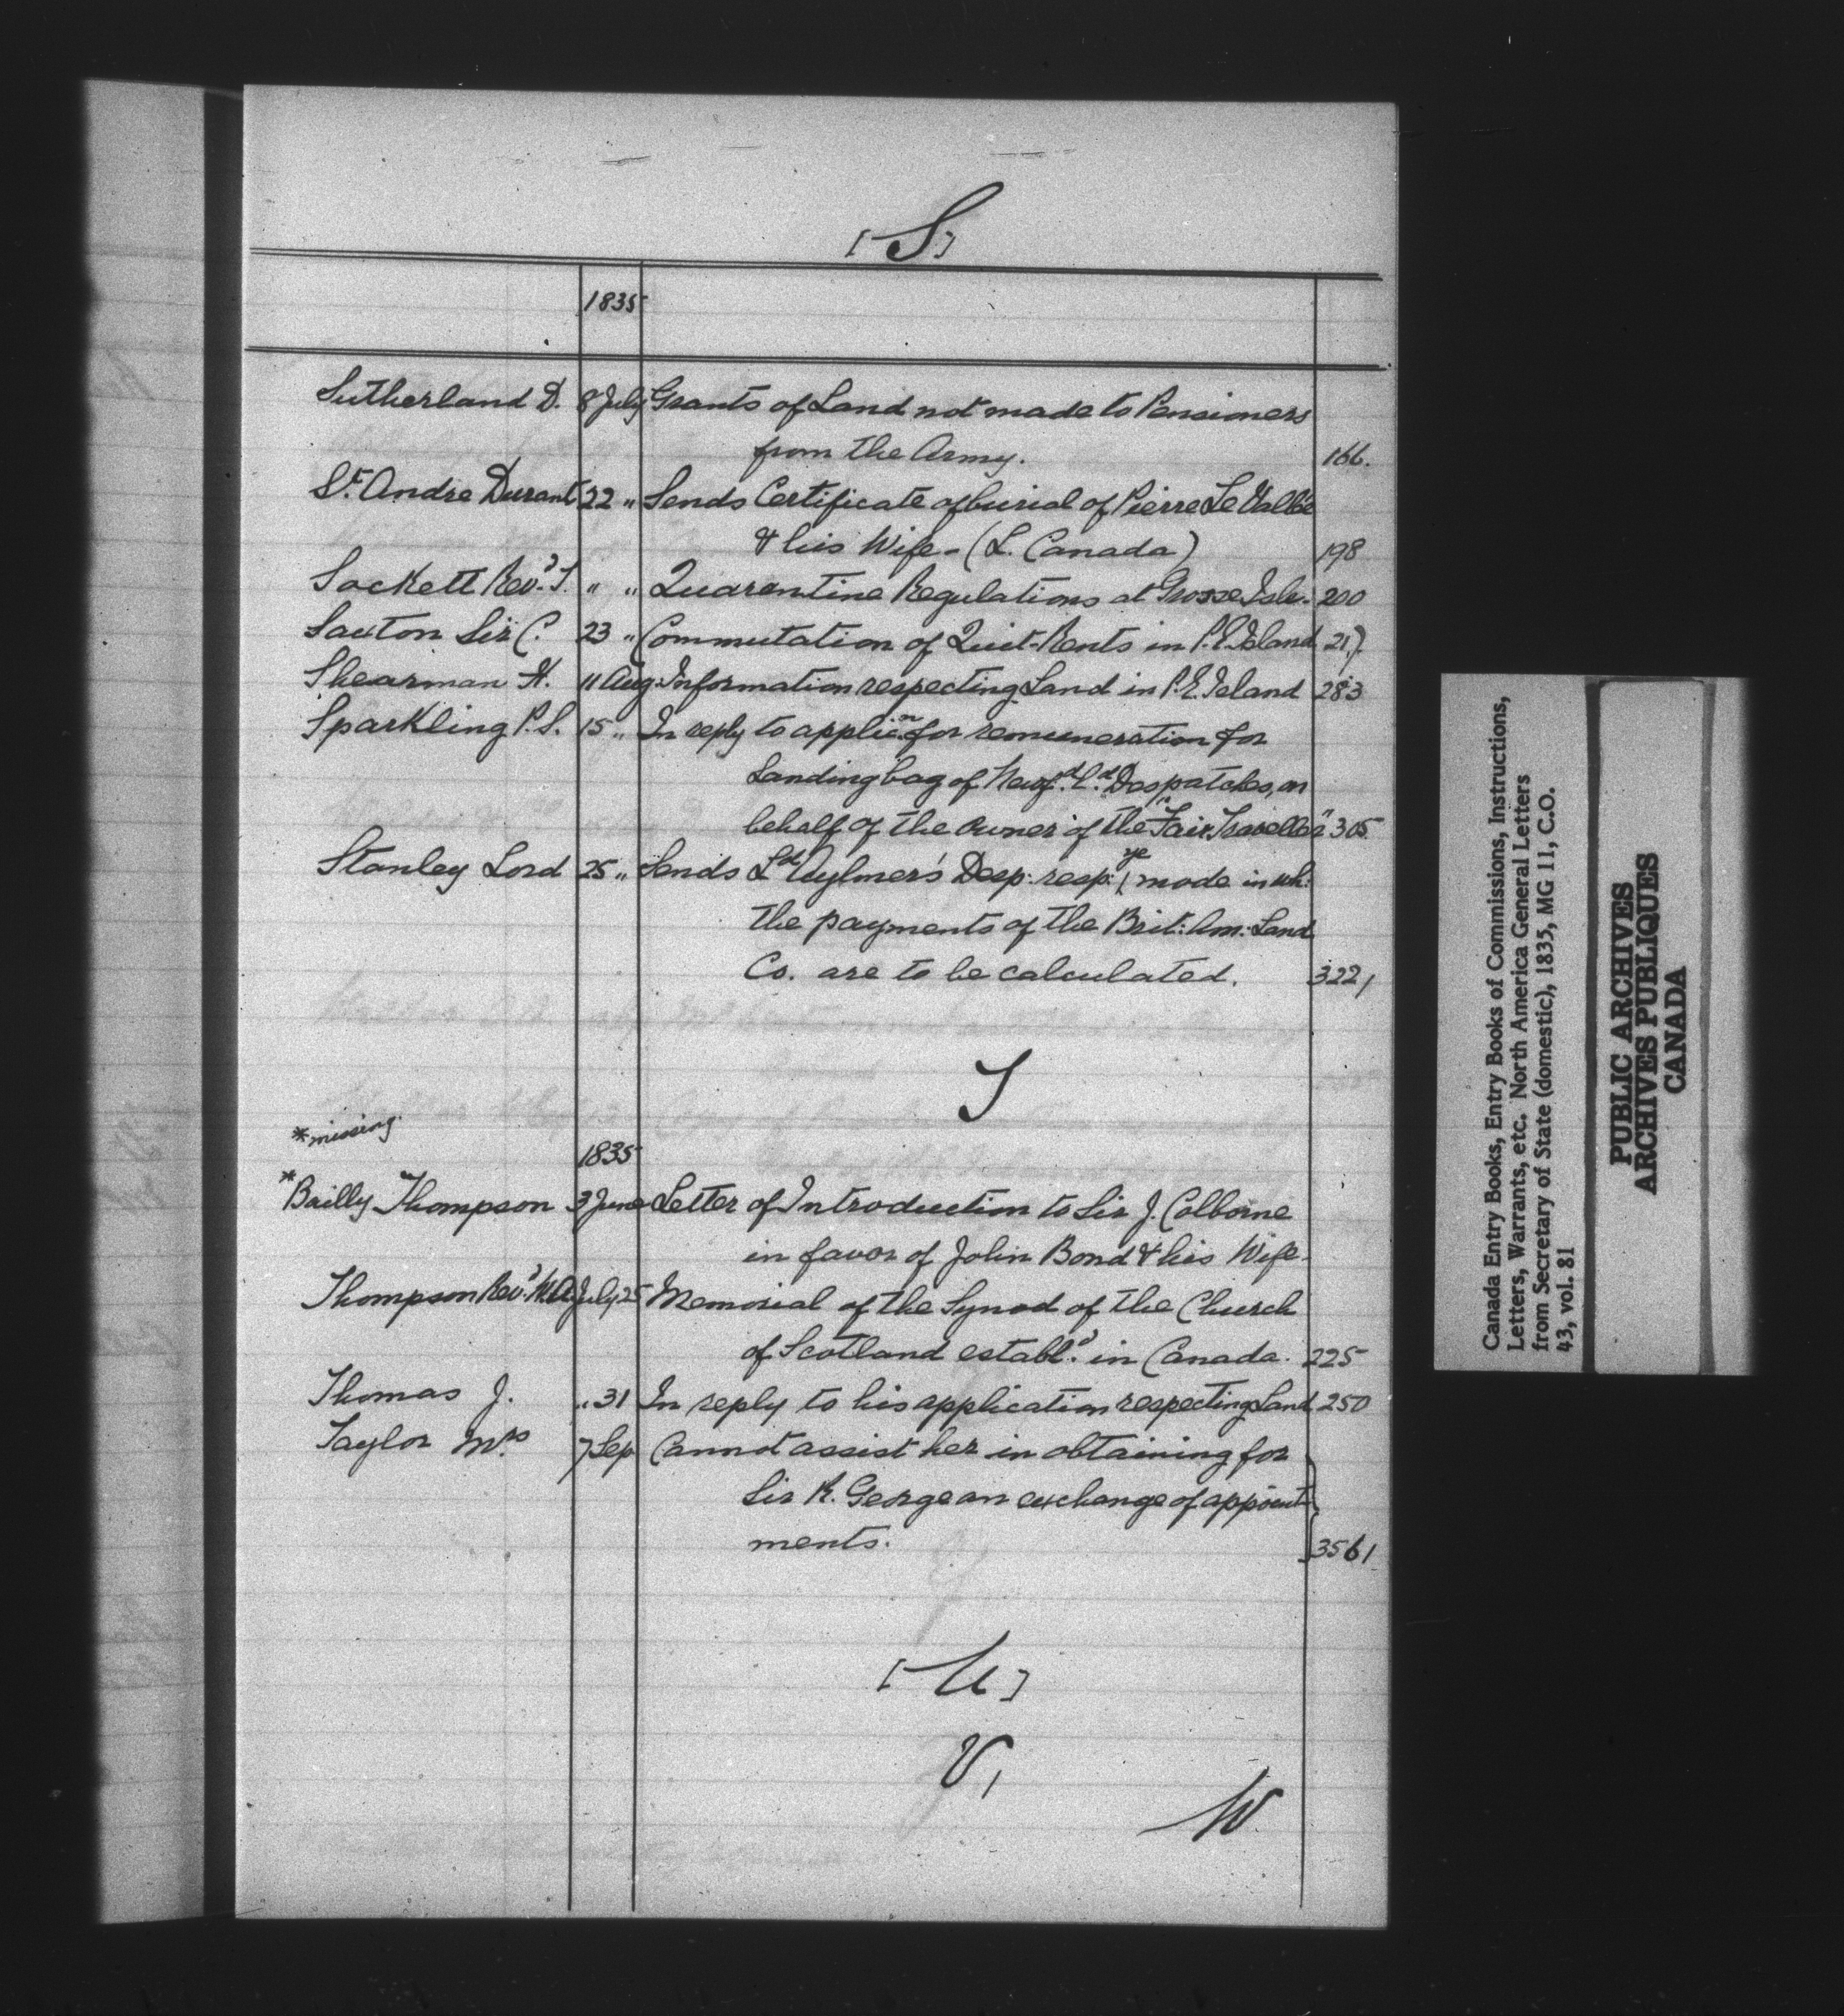 [S]
1835
Sutherland D. 8 July Grants of Land not made to Pensioners
from the Army. 166.
St. Andre Durant 22 " Sends Certificate of burial of Pierre Le Vallée
& his Wife - (L. Canada) 198
Sockett Revd. T. " " Quarantine Regulations at Grosse Isle. 200
Saxton Sir C. 23 " Commutation of Quit-Rents in P.E. Island 217.
Shearman H. 11 Aug: Information respecting Land in P.E. Island 283
Sparkling P.S. 15 " In reply to applicn. for remuneration for
Landing bag of Newfd. Ld. Despatches, on
behalf of the Owner of the "Fair Traveller" 305
Stanley Lord 25 " Sends Ld Aylmer's Desp: resp: ye mode in wh:
the payments of the Brit: Am: Land
Co. are to be calculated. 322/
T
*missing.
1835
*Bailly Thompson 3 June Letter of Introduction to Sir J. Colborne
in favor of John Bond & his Wife.
Thompson Revd. W.A. July 25 Memorial of the Synod of the Church
of Scotland establd. in Canada. 225
Thomas J. " 31 In reply to his application respecting Land 250
Taylor Mrs 7 Sep Cannot assist her in obtaining for
Sir R. George an exchange of appoint-
ments. 356/
[U]
V,
W.
Canada Entry Books, Entry Books of Commissions, Instructions,
Letters, Warrants, etc. North America General Letters
from Secretary of State (domestic), 1835, MG 11, C.O.
43, vol. 81
PUBLIC ARCHIVES
ARCHIVES PUBLIQUES
CANADA